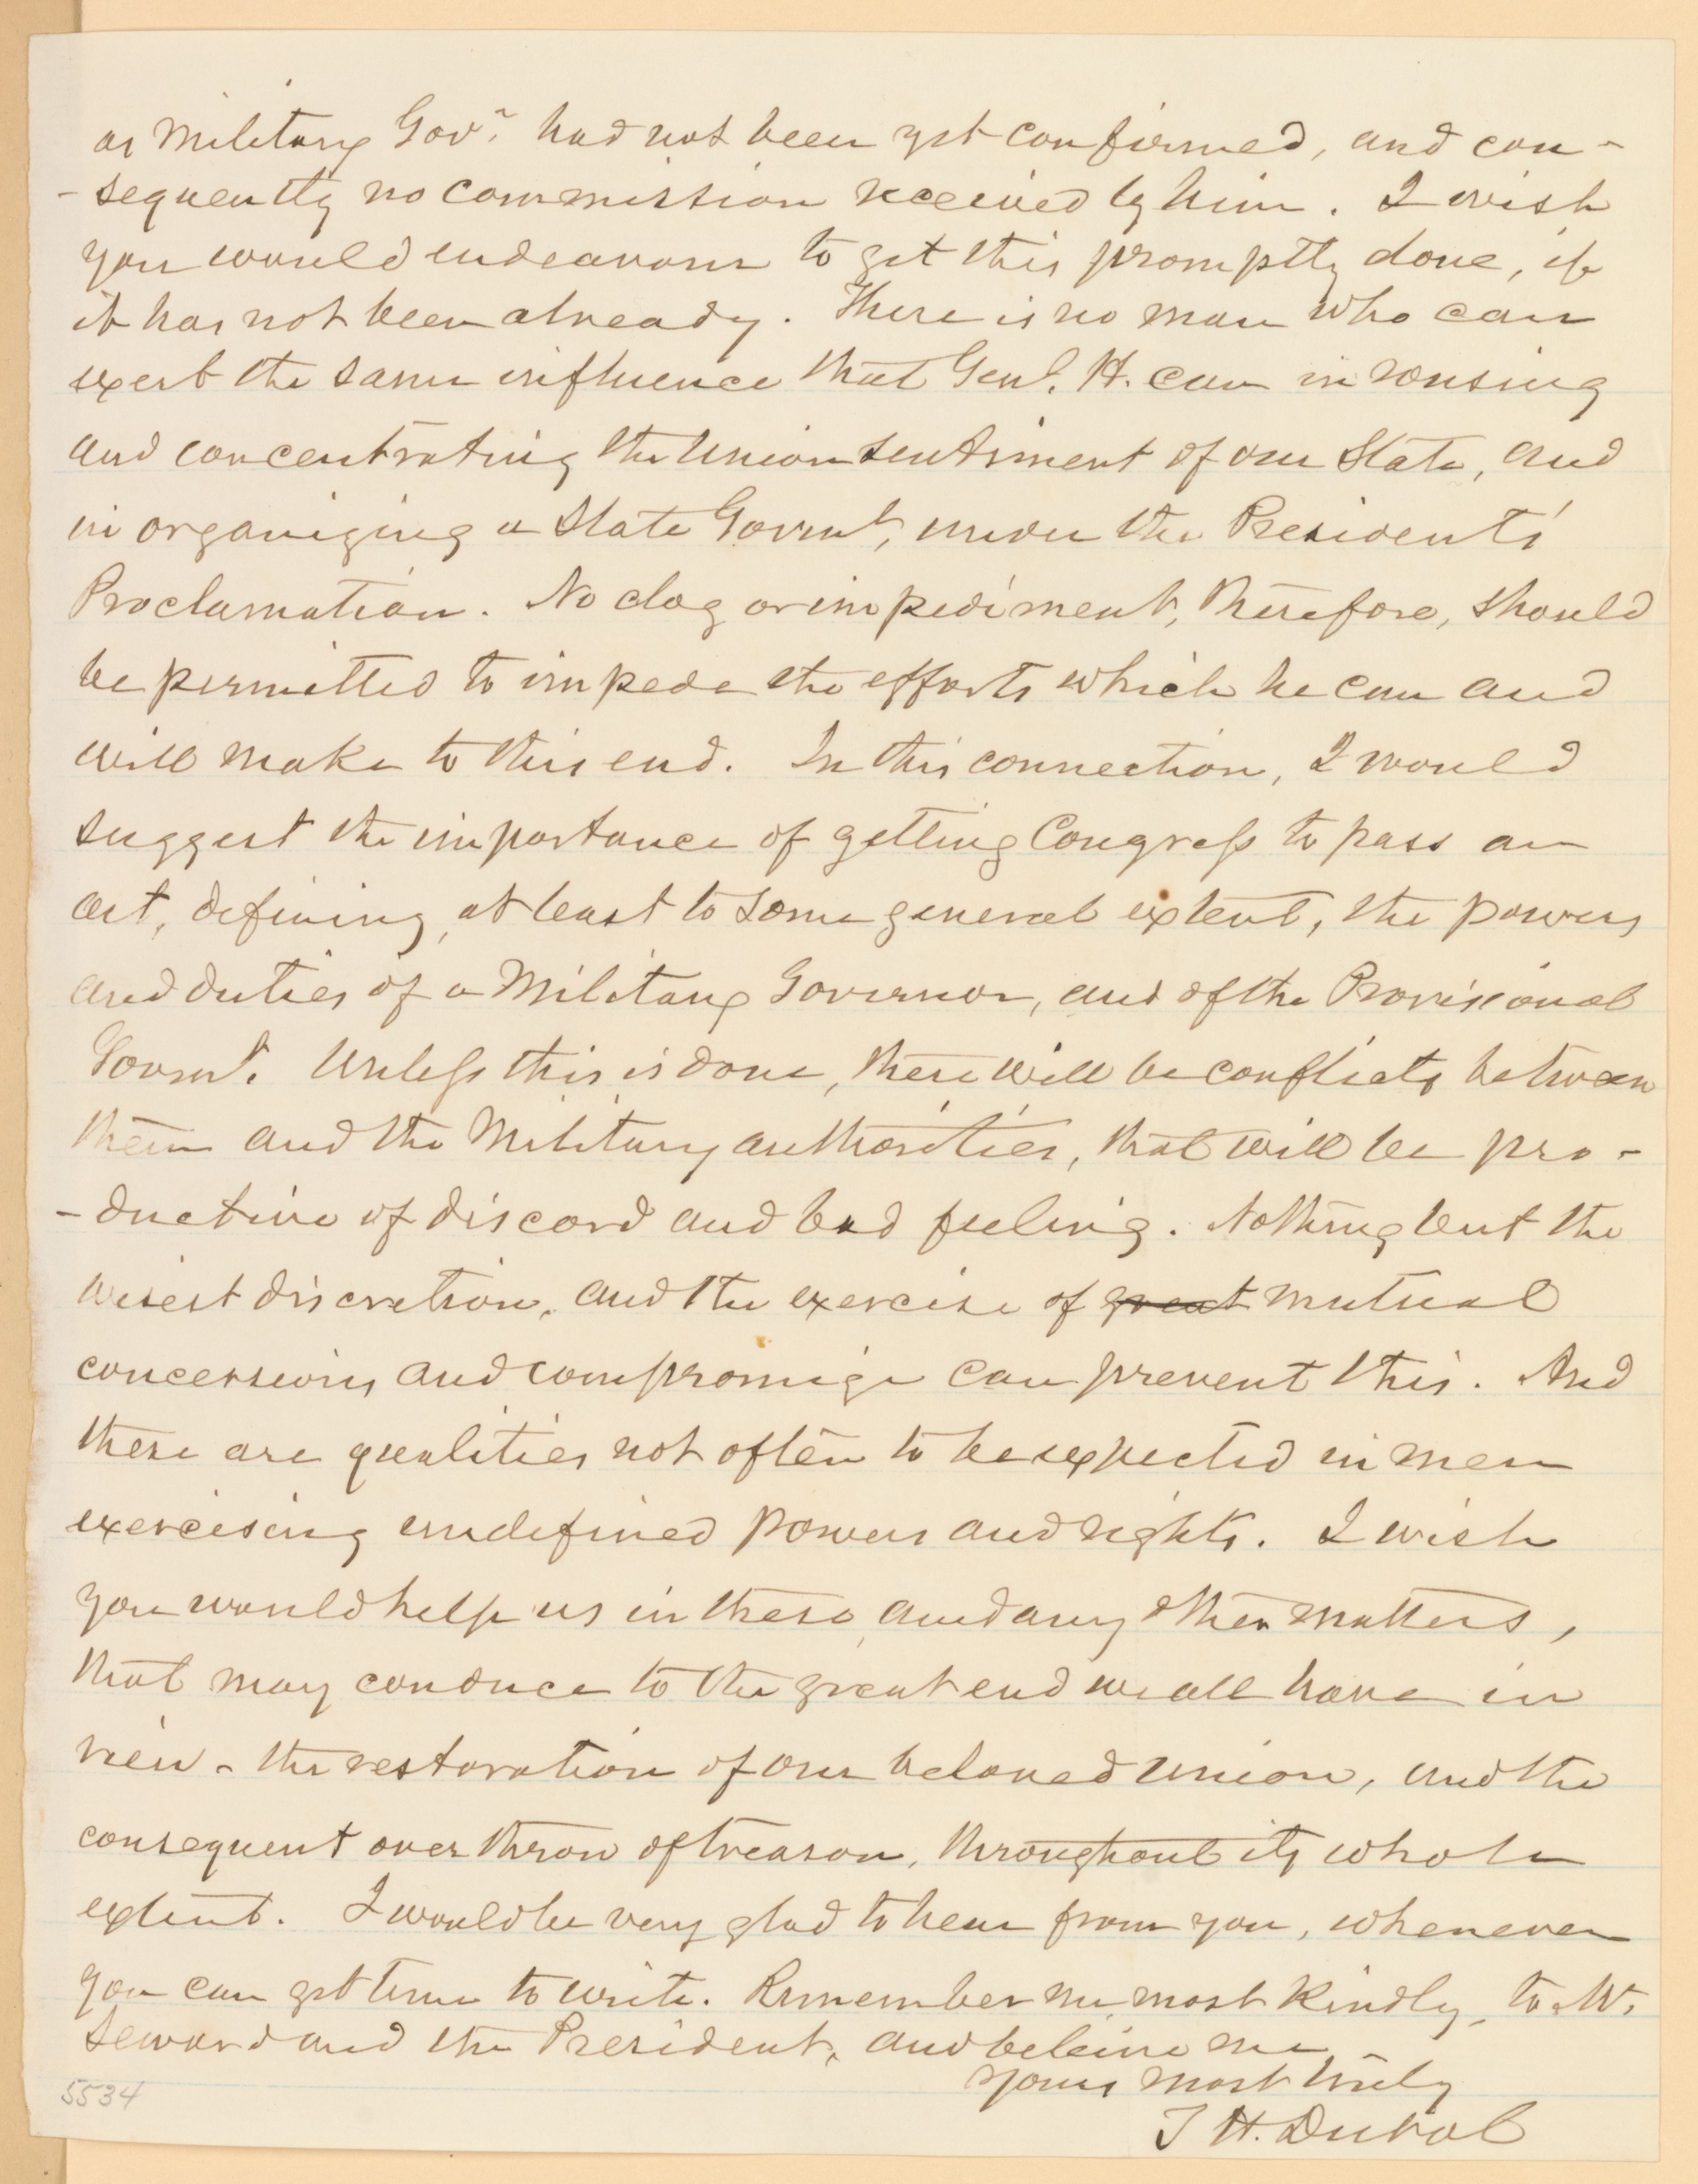 as Military Gov.r had not been yet confirmed, and con-
-sequently no commission received by him. I wish
you would endeavour to get this promptly done, if
it has not been already. There is no man who can
exert the same influence that Genl. H. can in rousing
and concentrating the Union sentiment of our State, and
in organizing a State Govmt, under the Presidents'
Proclamation. No clog or impediment, therefore, should
be permitted to impede the efforts which he can and
will make to this end. In this connection, I would
suggest the importance of getting Congress to pass an
act, defining, at least to some general extent, the powers
and duties of a Military Governor, and of the Provisional
Govmt. Unless this is done, there will be conflicts between
them and the Military authorities, that will be pro-
-ductive of discord and bad feeling. Nothing but the
wisest discretion, and the exercise of great mutual
concessions and compromize can prevent this. And
these are qualities not often to be expected in men
exercising undefined powers and rights. I wish
you would help us in these, and any other matters,
that may conduce to the great end we all have in
view - the restoration of our beloved Union, and the
consequent overthrow of treason, throughout its whole
extent. I would be very glad to hear from you, whenever
you can get time to write. Remember me most kindly, to Mr.
Seward and the President, and beleive me
Yours most truly
T H. Duval
5534